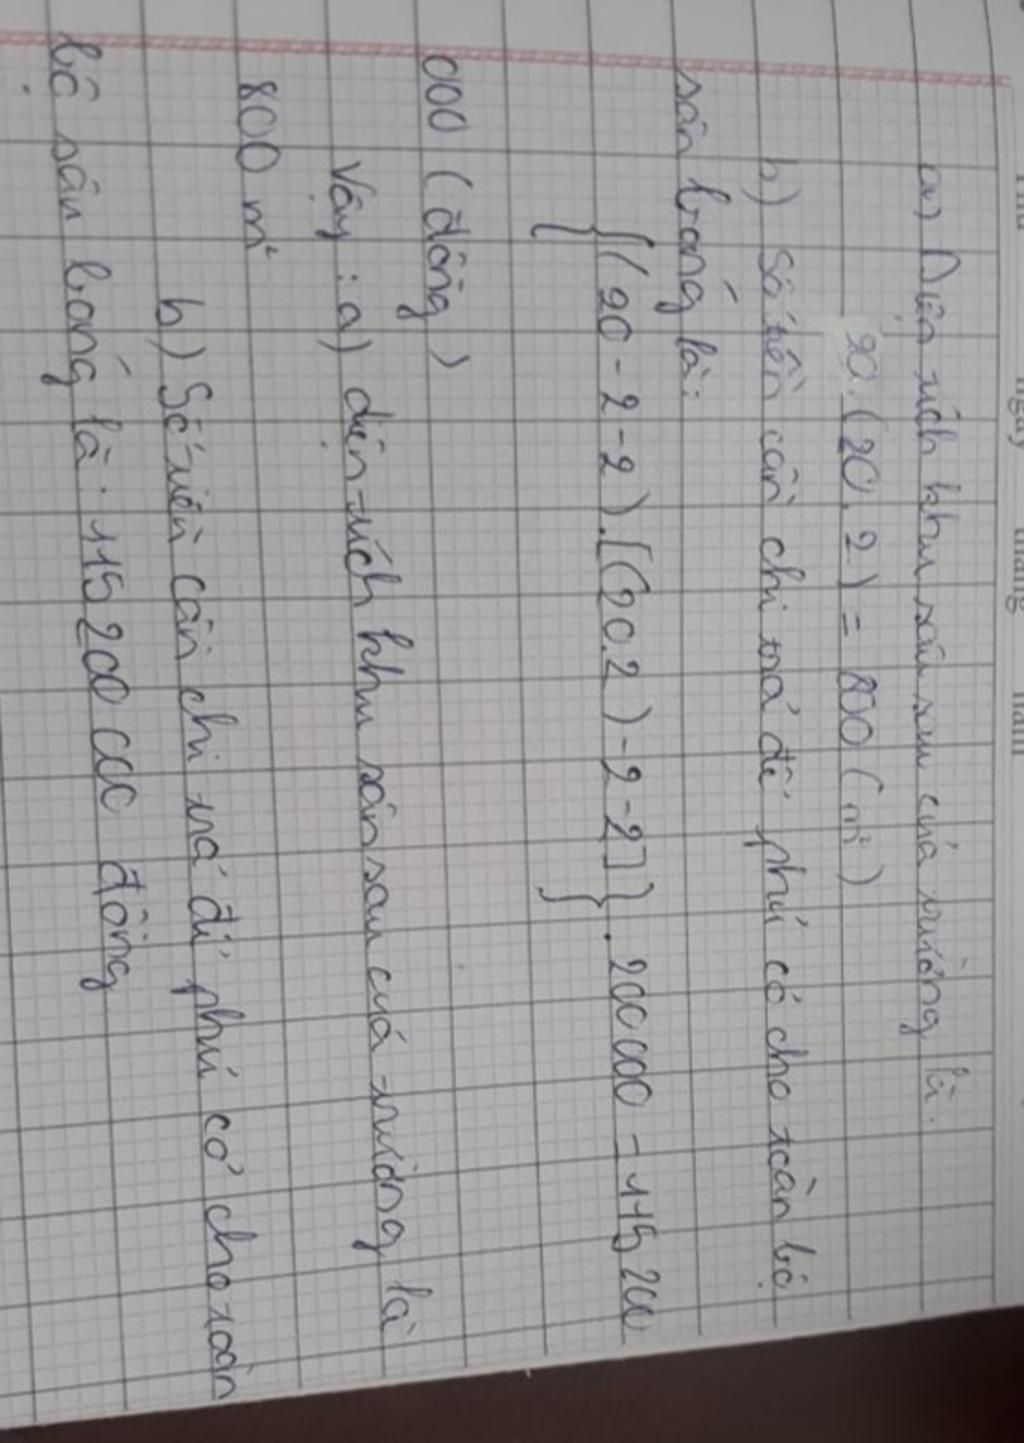 ngày tháng năm
a) Diện tích khu sân sau của trường là.
20.(20.2) = 800 (m²)
b) Số tiền cần chi trả để phủ cỏ cho toàn bộ
sân bóng là:
{(20-2-2).[(20.2)-2-2]}.200 000 = 115 200
000 (đồng)
Vậy: a) diện tích khu sân sau của trường là
800 m²
b) Số tiền cần chi trả để phủ cỏ cho toàn
bộ sân bóng là: 115 200 000 đồng